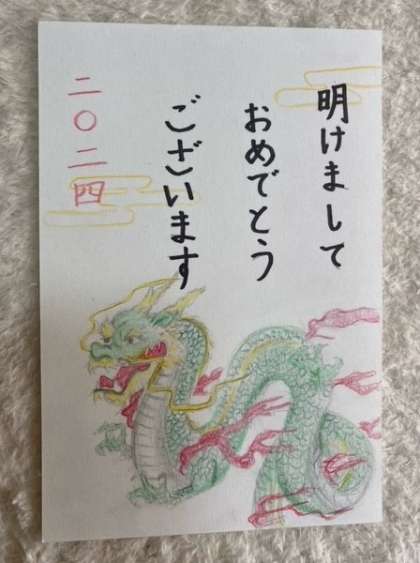 明けまして
おめでとう
ございます
二〇二四